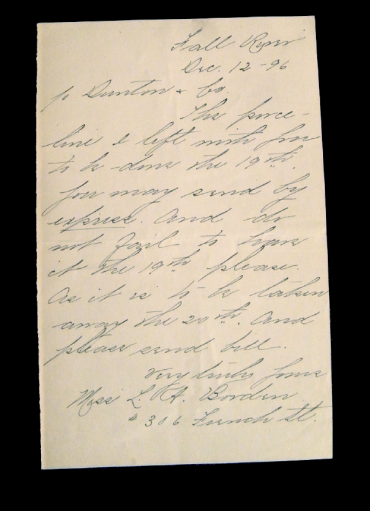 Fall River
Dec. 12 - 96
Dunton & Co.
The porce-
line I left with you
to be done the 19th.
you may send by
express. And do
not fail to have
it the 19th please.
As it is to be taken
away the 20th. And
please send bill.
Very truly yours
Miss L. A. Borden
# 306 French St.